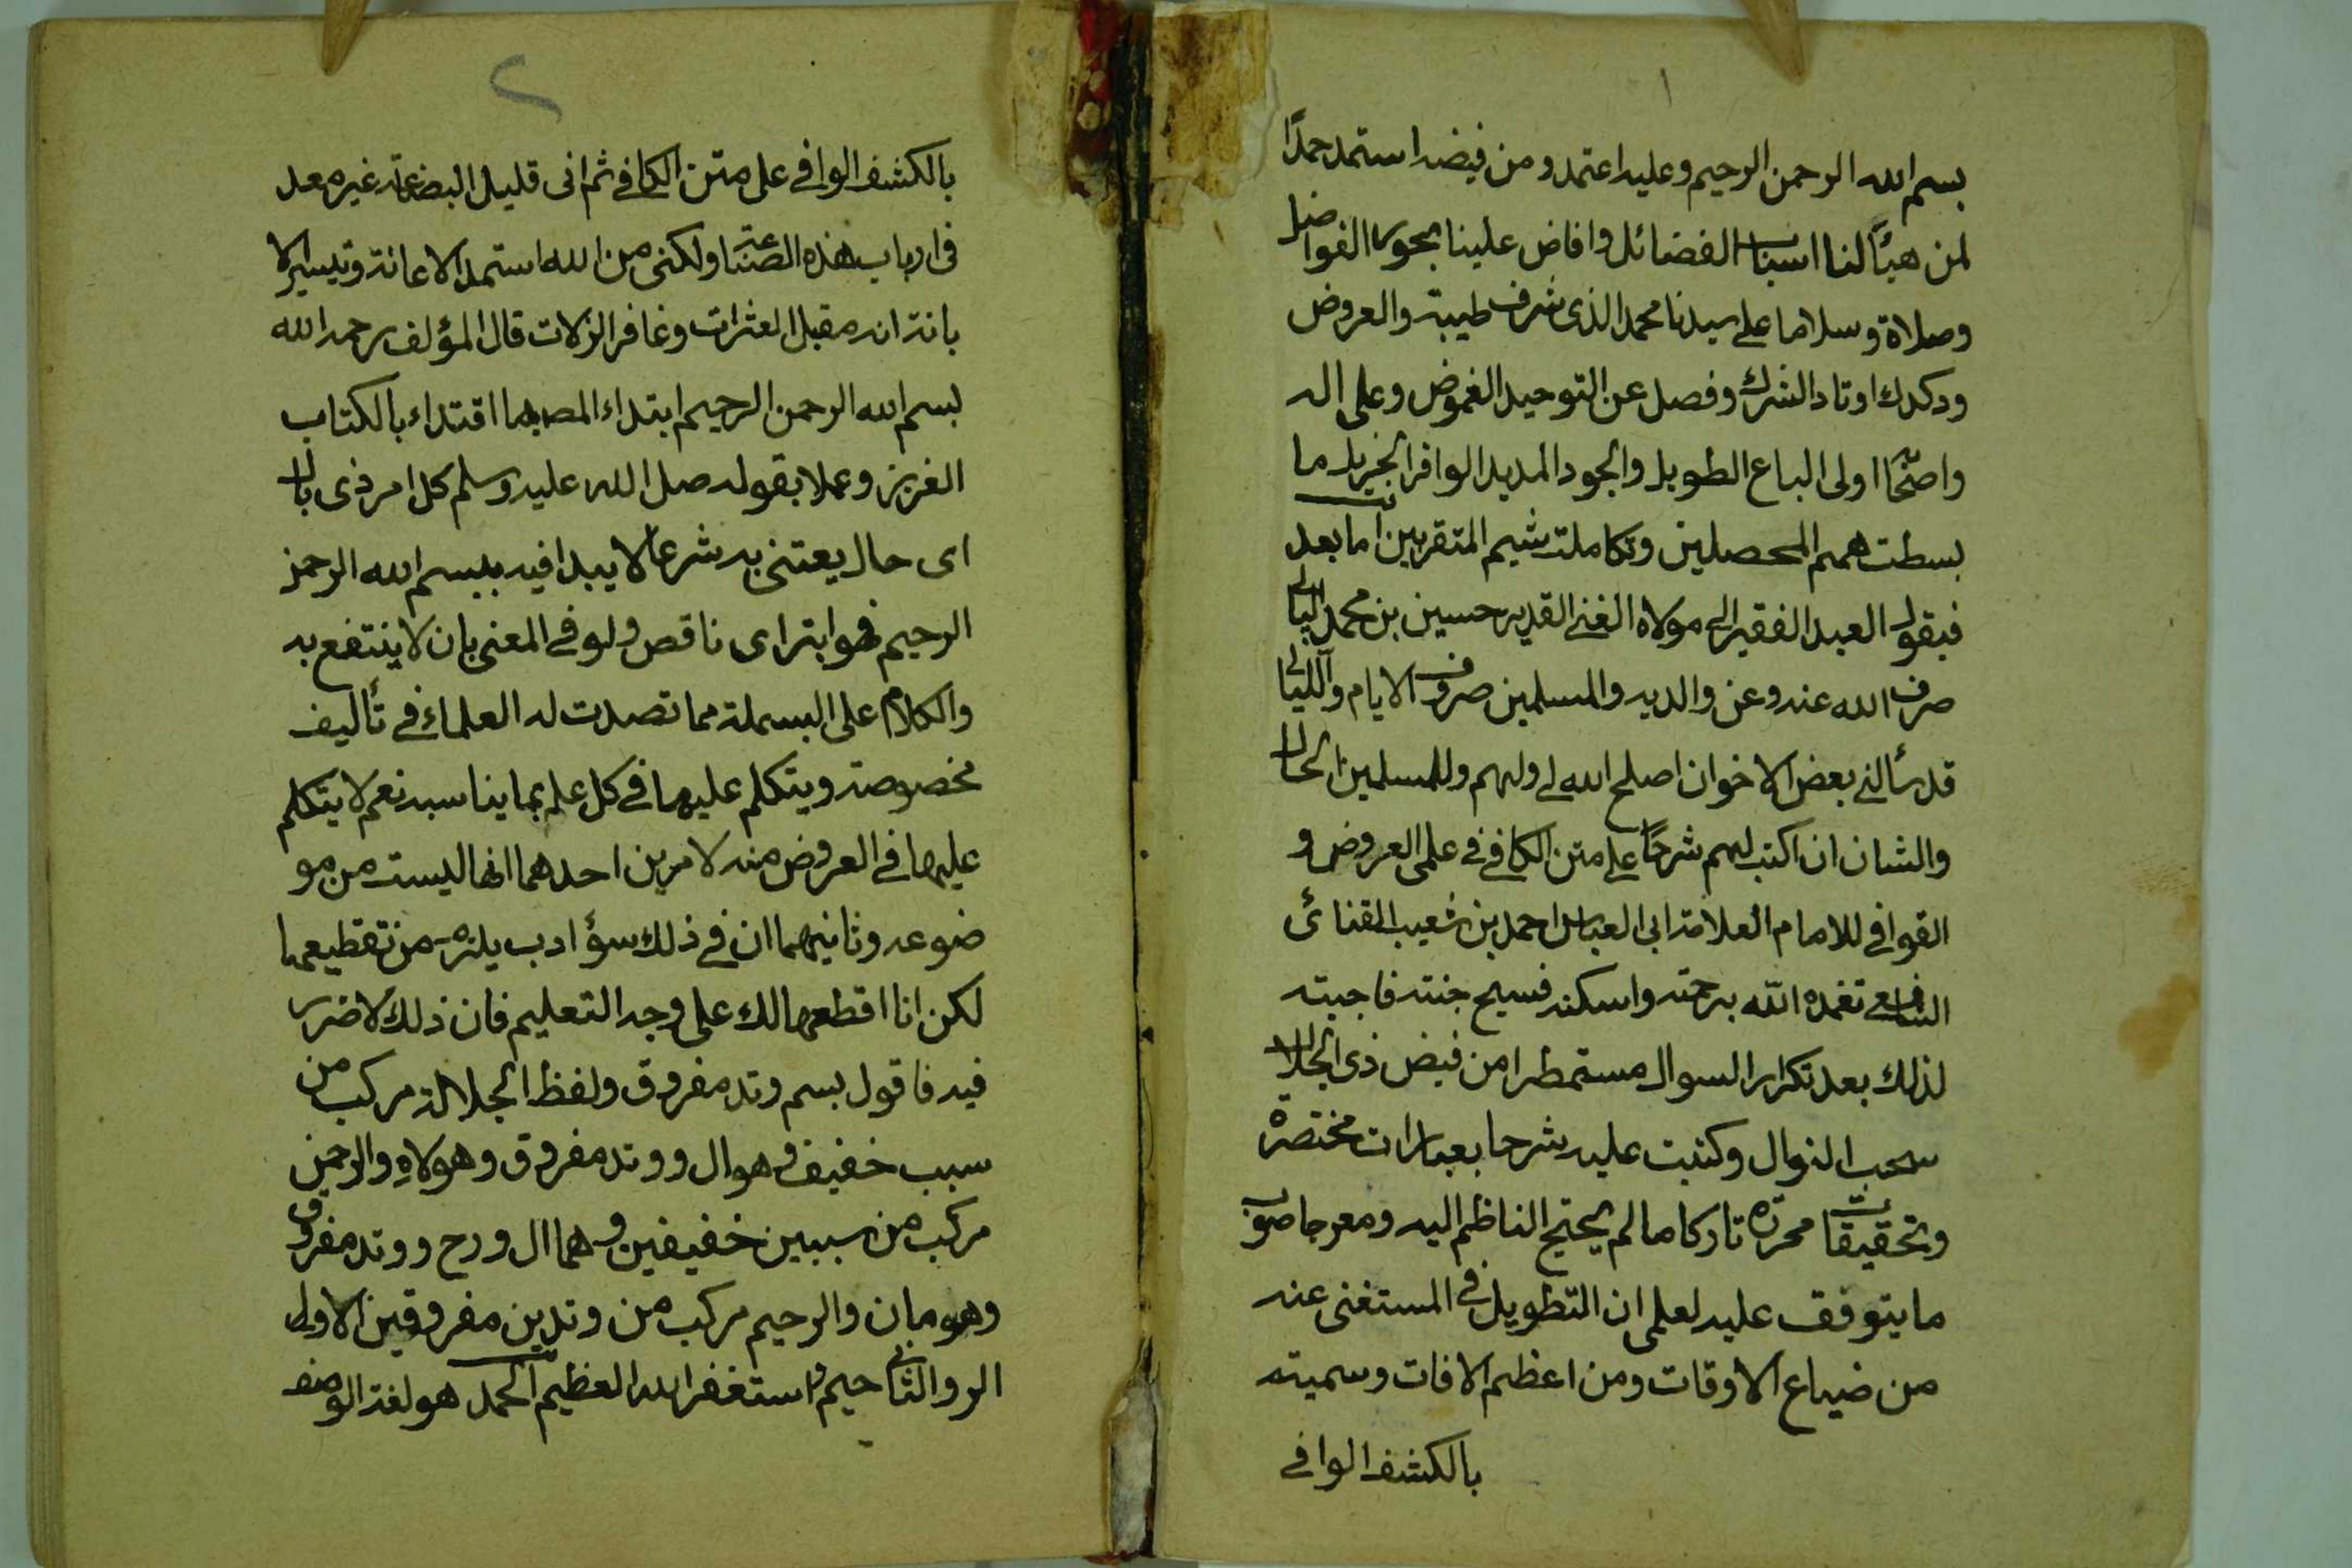 ١
بسم الله الرحمن الرحيم وعليه اعتمد ومن فيضه استمد حمدًا
لمن هيأ لنا اسباب الفضائل وافاض علينا بحور الفواضل
وصلاة وسلاما على سيدنا محمد الذى شرف طيبة والعروض
ودكدك اوتاد الشرك وفصل عن التوحيد الغموض وعلى اله
واصحابه اولى الباع الطويل والجود المديد الوافر الجزيل ما
بسطت همم المحصلين وتكاملت شيم المتقربين اما بعد
فيقول العبد الفقير الى مولاه الغنى القدير حسين بن محمد
صرف الله عنه وعن والديه والمسلمين صروف الايام والليالى
قد سألنى بعض الاخوان اصلح الله لى ولهم وللمسلمين الحال
والشان ان اكتب لهم شرحًا على متن الكافى فى علمى العروض و
القوافى للامام العلامة ابى العباس احمد بن شعيب القنائى
الشافعى تغمده الله برحمته واسكنه فسيح جنته فاجبته
لذلك بعد تكرار السوال مستمطرا من فيض ذى الجلال
سحب النوال وكتبت عليه شرحا بعبارات مختصرة
وتحقيقات محررة تاركا ما لم يحتج الناظم اليه ومعرجا صوب
ما يتوقف عليه لعلمى ان التطويل فى المستغنى عنه
من ضياع الاوقات ومن اعظم الافات وسميته
بالكشف الوافى
٢
بالكشف الوافى على متن الكافى ثم انى قليل البضاعة غير معد
فى ارباب هذه الصناعة ولكنى من الله استمد الاعانة وتيسير الا
بانة انه مقيل العثرات وغافر الزلات قال المؤلف رحمه الله
بسم الله الرحمن الرحيم ابتداء المص بها اقتداء بالكتاب
العزيز وعملا بقوله صلى الله عليه وسلم كل امر ذى بال
اى حال يعتنى به شرعا لا يبدا فيه ببسم الله الرحمن
الرحيم فهو ابتر اى ناقص ولو فى المعنى بان لا ينتفع به
والكلام على البسملة مما تصدت له العلماء فى تأليف
مخصوصة ويتكلم عليها فى كل علم بما يناسبه نعم لا يتكلم
عليها فى العروض منه لامرين احدهما انها ليست من مو
ضوعه وثانيهما ان فى ذلك سؤ ادب يلزم من تقطيعها
لكن انا اقطعها لك على وجه التعليم فان ذلك لا ضرر
فيه فاقول بسم وتد مفروق ولفظ الجلالة مركب من
سبب خفيف وهو ال ووتد مفروق وهو لاهِ والرحمن
مركب من سببين خفيفين وهما ال ورح ووتد مفروق
وهو مان والرحيم مركب من وتدين مفروقين الاول
الر والثانى حيم واستغفر الله العظيم الحمد هو لغة الوصف